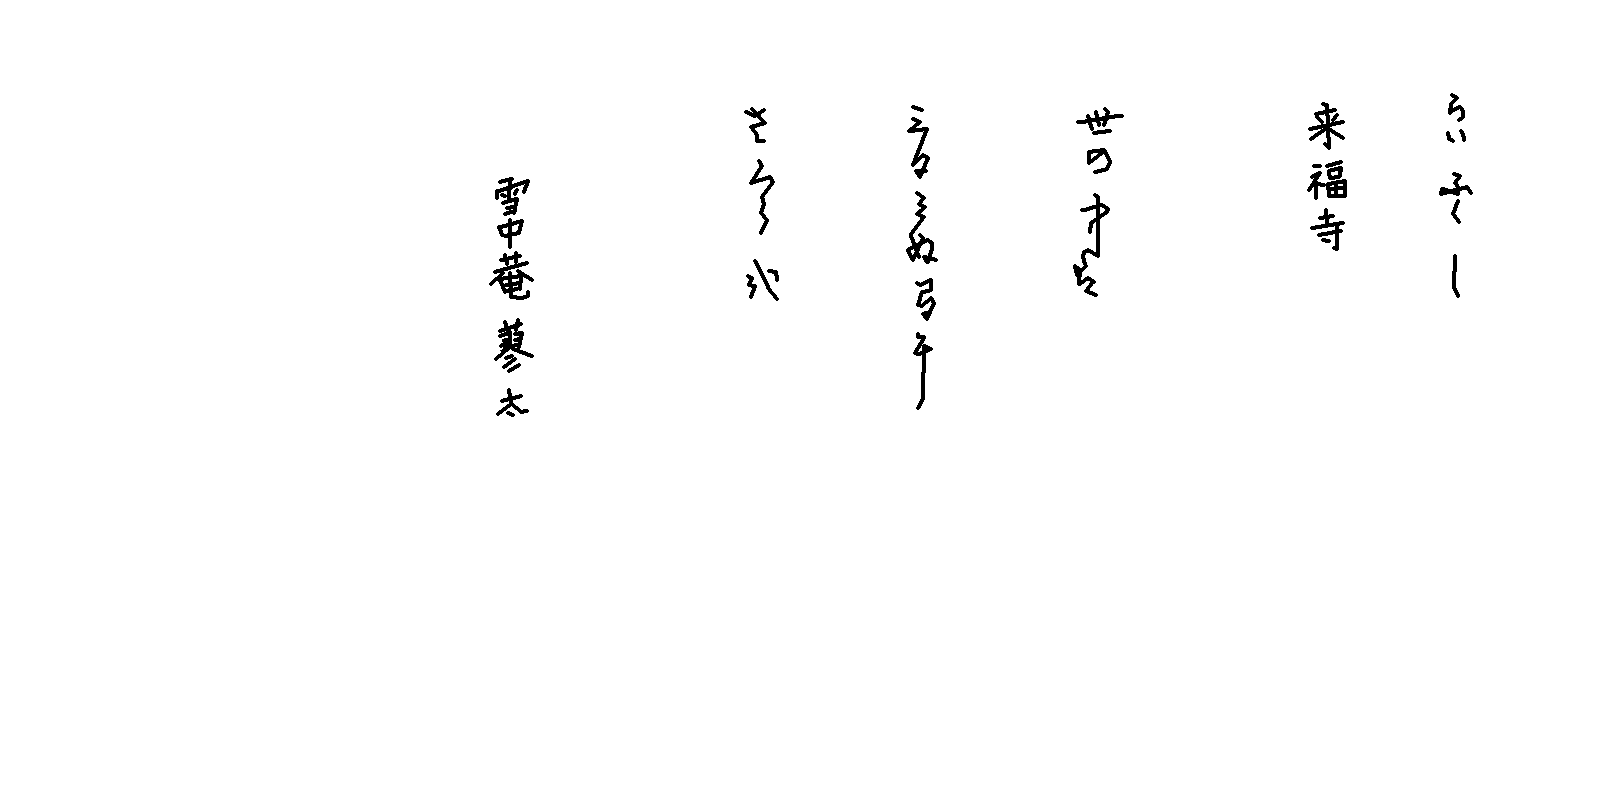 らいふくし
来福寺
世の中は
三日見ぬ間に
さくら哉
雪中菴蓼太